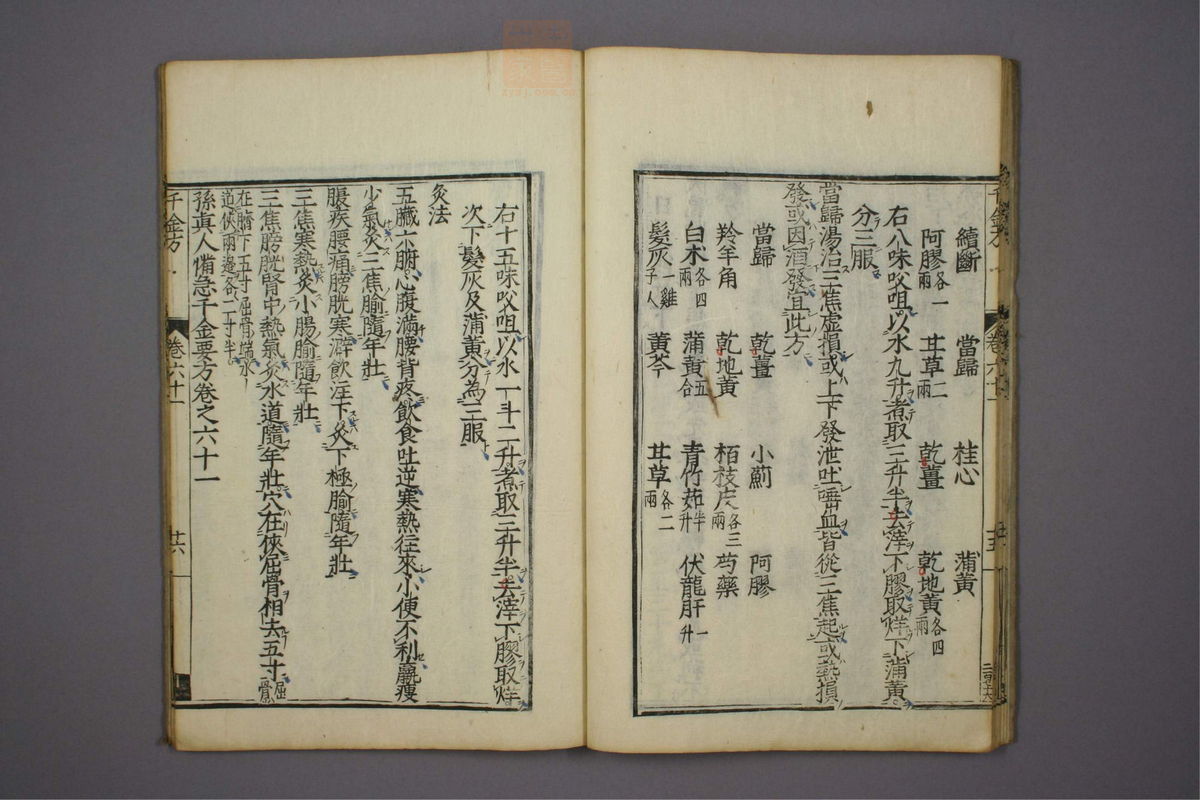 續斷 當歸 桂心 蒲黃
阿膠各一兩 甘草二兩 乾薑 乾地黃各四兩
右八味㕮咀以水九升煮取三升半去滓下膠取烊下蒲黃
分三服
當歸湯治三焦虛損或上下發泄吐唾血皆從三焦起或熱損
發或因酒發宜此方
當歸 乾薑 小薊 阿膠
羚羊角 乾地黃 栢枝皮各三兩 芍藥
白朮各四兩 蒲黃五合 青竹茹半升 伏龍肝一升
髮灰一雞子 黃芩 甘草各二兩
右十五味㕮咀以水一斗二升煮取三升半去滓下膠取烊
次下髮灰及蒲黃分為三服
灸法
五臟六腑心腹滿腰背疼飲食吐逆寒熱往來小便不利羸瘦
少氣灸三焦腧隨年壯
脹疾腰痛膀胱寒澼飲注下灸下極腧隨年壯
三焦寒熱灸小腸腧隨年壯
三焦膀胱腎中熱氣灸水道隨年壯穴在俠屈骨相去五寸屈骨
在臍下五寸屈骨端水道俠兩邊各二寸半
孫真人備急千金要方卷之六十一
千金方 卷六十一 廿六